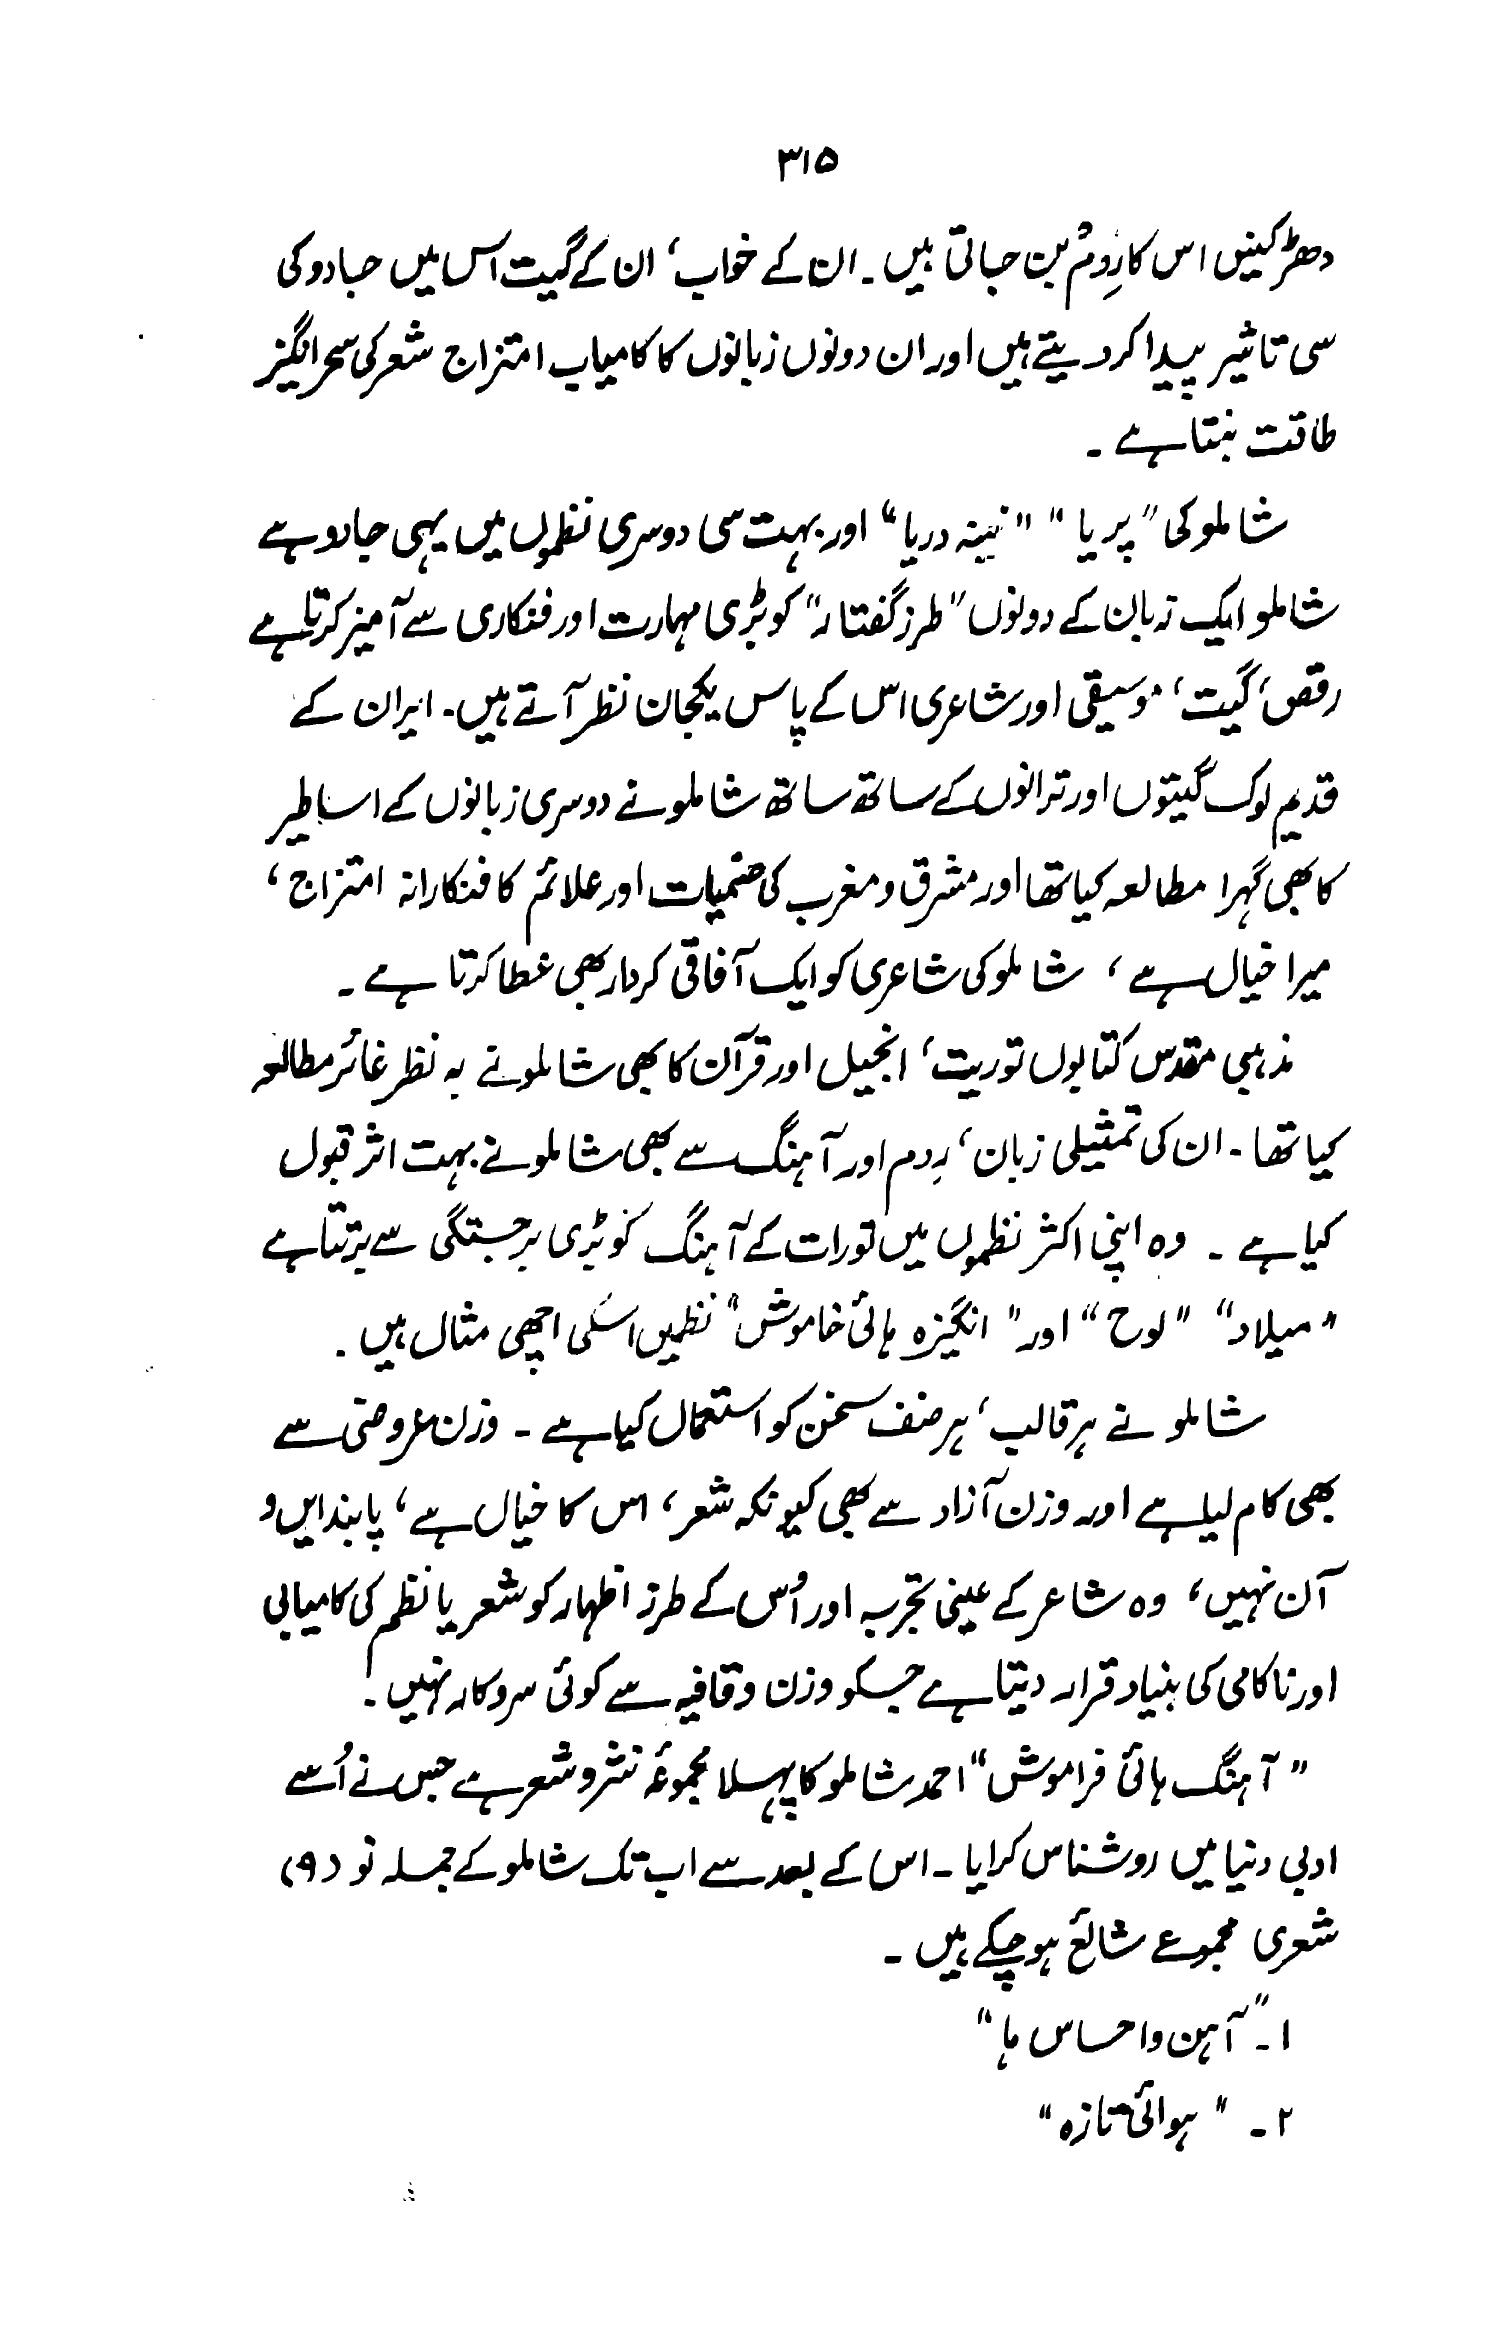 ۳۱۵
دھڑکنیں اس کا رِدمْ بن جاتی ہیں۔ ان کے خواب، ان کے گیت اس میں جادو کی
سی تاثیر پیدا کر دیتے ہیں اور ان دونوں زبانوں کا کامیاب امتزاج شعر کی سحر انگیز
طاقت بنتا ہے ۔
شاملو کی "پریا" "نینہ دریا" اور بہت سی دوسری نظموں میں یہی جادو ہے
شاملو ایک زبان کے دونوں "طرز گفتار" کو بڑی مہارت اور فنکاری سے آمیز کرتا ہے
رقص، گیت، موسیقی اور شاعری اس کے پاس یکجان نظر آتے ہیں۔ ایران کے
قدیم لوک گیتوں اور ترانوں کے ساتھ ساتھ شاملو نے دوسری زبانوں کے اساطیر
کا بھی گہرا مطالعہ کیا تھا اور مشرق و مغرب کی صنمیات اور علائم کا فنکارانہ امتزاج،
میرا خیال ہے، شاملو کی شاعری کو ایک آفاقی کردار بھی عطا کرتا ہے ۔
مذہبی مقدس کتابوں توریت، انجیل اور قرآن کا بھی شاملو نے بہ نظر غائر مطالعہ
کیا تھا ۔ ان کی تمثیلی زبان، رِدم اور آہنگ سے بھی شاملو نے بہت اثر قبول
کیا ہے ۔ وہ اپنی اکثر نظموں میں تورات کے آہنگ کو بڑی برجستگی سے برتتا ہے
"میلاد" "لوح" اور "انگیزہ ہائی خاموش" نظمیں اسکی اچھی مثال ہیں ۔
شاملو نے ہر قالب، ہر صنف سخن کو استعمال کیا ہے ۔ وزن عروضی سے
بھی کام لیا ہے اور وزن آزاد سے بھی کیونکہ شعر، اس کا خیال ہے، پابند ایں و
آں نہیں، وہ شاعر کے عینی تجربہ اور اُس کے طرز اظہار کو شعر یا نظم کی کامیابی
اور ناکامی کی بنیاد قرار دیتا ہے جسکو وزن و قافیہ سے کوئی سروکار نہیں ۔
"آہنگ ہائی فراموش" احمد شاملو کا پہلا مجموعۂ نثر و شعر ہے جس نے اُسے
ادبی دنیا میں روشناس کرایا ۔ اس کے بعد سے اب تک شاملو کے جملہ نو (۹)
شعری مجموعے شائع ہو چکے ہیں ۔
۱۔ "آہن و احساس ہا"
۲۔ "ہوائی تازہ"